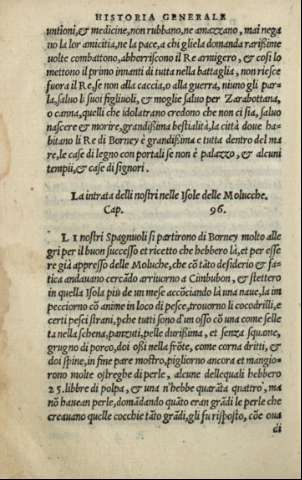 HISTORIA GENERALE
untioni, & medicine, non rubbano, ne amazzano, mai nega
no la lor amicitia, ne la pace, a chi gliela domanda rarissime
uolte combattono, abborriscono il Re armigero, & cosi lo
mettono il primo innanti di tutta nella battaglia, non riesce
fuora il Re, se non alla caccia, o alla guerra, niuno gli par-
la, saluo li suoi figliuoli, & moglie saluo per Zarabottana,
o canna, quelli che idolatrano credono che non ci sia, saluo
nascere & morire, grandissima bestialità, la città doue ha-
bitano li Re di Borney è grandissima e tutta dentro del ma
re, le case di legno con portali se non è palazzo, & alcuni
tempii, & case di signori.
La intrata delli nostri nelle Isole delle Molucche.
Cap. 96.
LI nostri Spagnuoli si partirono di Borney molto alle
gri per il buon successo et ricetto che hebbero là, et per esse
re già appresso delle Moluche, che cõ tãto desiderio & fa-
tica andauano cercãdo arriuorno a Cimbubon, & stettero
in quella Isola più de un mese accõciando là una naue, la im
peciorno cõ anime in loco di pesce, trouorno li cocodrilli, e
certi pesci strani, pche tutti sono d'un osso cõ una come selle
ta nella schena, panzuti, pelle durissima, et senza squame,
grugno di porco, doi ossi nella frõte, come corna dritti, &
doi spine, in fine pare mostro, pigliorno ancora et mangio-
rono molte ostreghe di perle, alcune dellequali hebbero
25. libbre di polpa, & una n'hebbe quarãta quattro, ma
nõ hauean perle, domãdando quãto eran grãdi le perle che
creauano quelle cocchie tãto grãdi, gli fu risposto, cõe oua
di